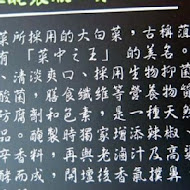 菜所採用的大白菜，古稱
有「菜中之王」的美名。
、清淡爽口、採用生物抑菌
酸菌、膳食纖維等營養物質
防腐劑和色素，是一種天然
品。醃製時獨家增添辣椒
辛香料，再與老滷汁及高
酵而成，開壇後香氣撲鼻